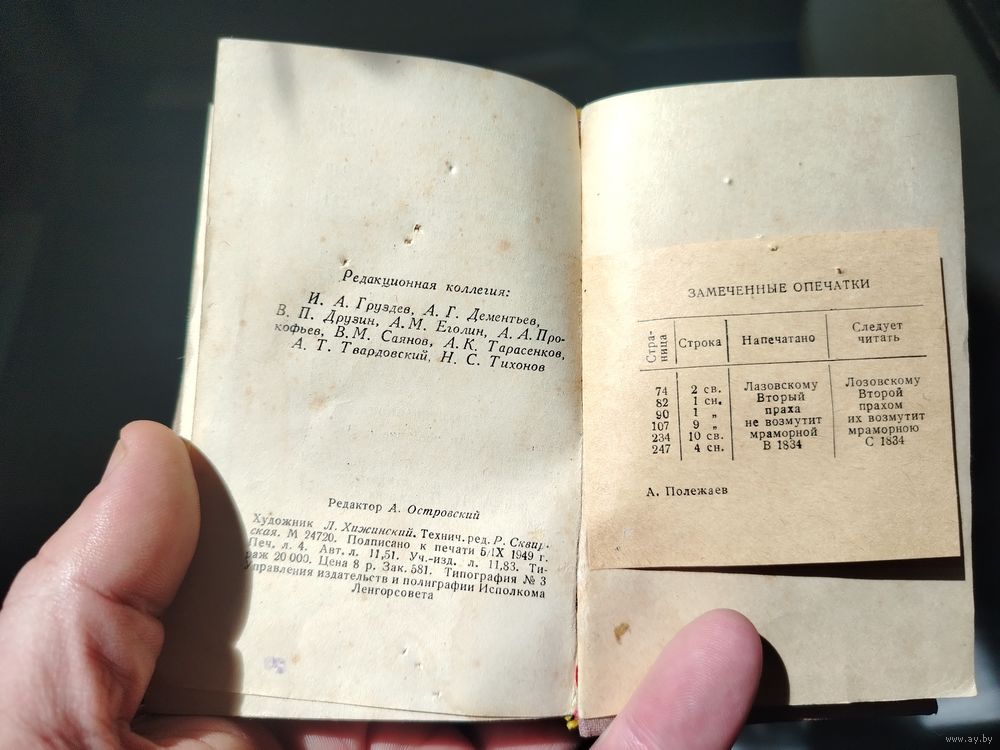 Редакционная коллегия:
И. А. Груздев, А. Г. Дементьев,
В. П. Друзин, А. М. Еголин, А. А. Про-
кофьев, В. М. Саянов, А. К. Тарасенков,
А. Т. Твардовский, Н. С. Тихонов
Редактор А. Островский
Художник Л. Хижинский. Технич. ред. Р. Сквир-
ская. М 24720. Подписано к печати 5/IX 1949 г.
Печ. л. 4. Авт. л. 11,51. Уч.-изд. л. 11,83. Ти-
раж 20 000. Цена 8 р. Зак. 581. Типография № 3
Управления издательств и полиграфии Исполкома
Ленгорсовета
ЗАМЕЧЕННЫЕ ОПЕЧАТКИ
Стра-
ница
Строка
Напечатано
Следует
читать
74 2 св. Лазовскому Лозовскому
82 1 сн. Вторый Второй
90 1 „ праха прахом
107 9 „ не возмутит их возмутит
234 10 св. мраморной мраморною
247 4 сн. В 1834 С 1834
А. Полежаев
www.ay.by